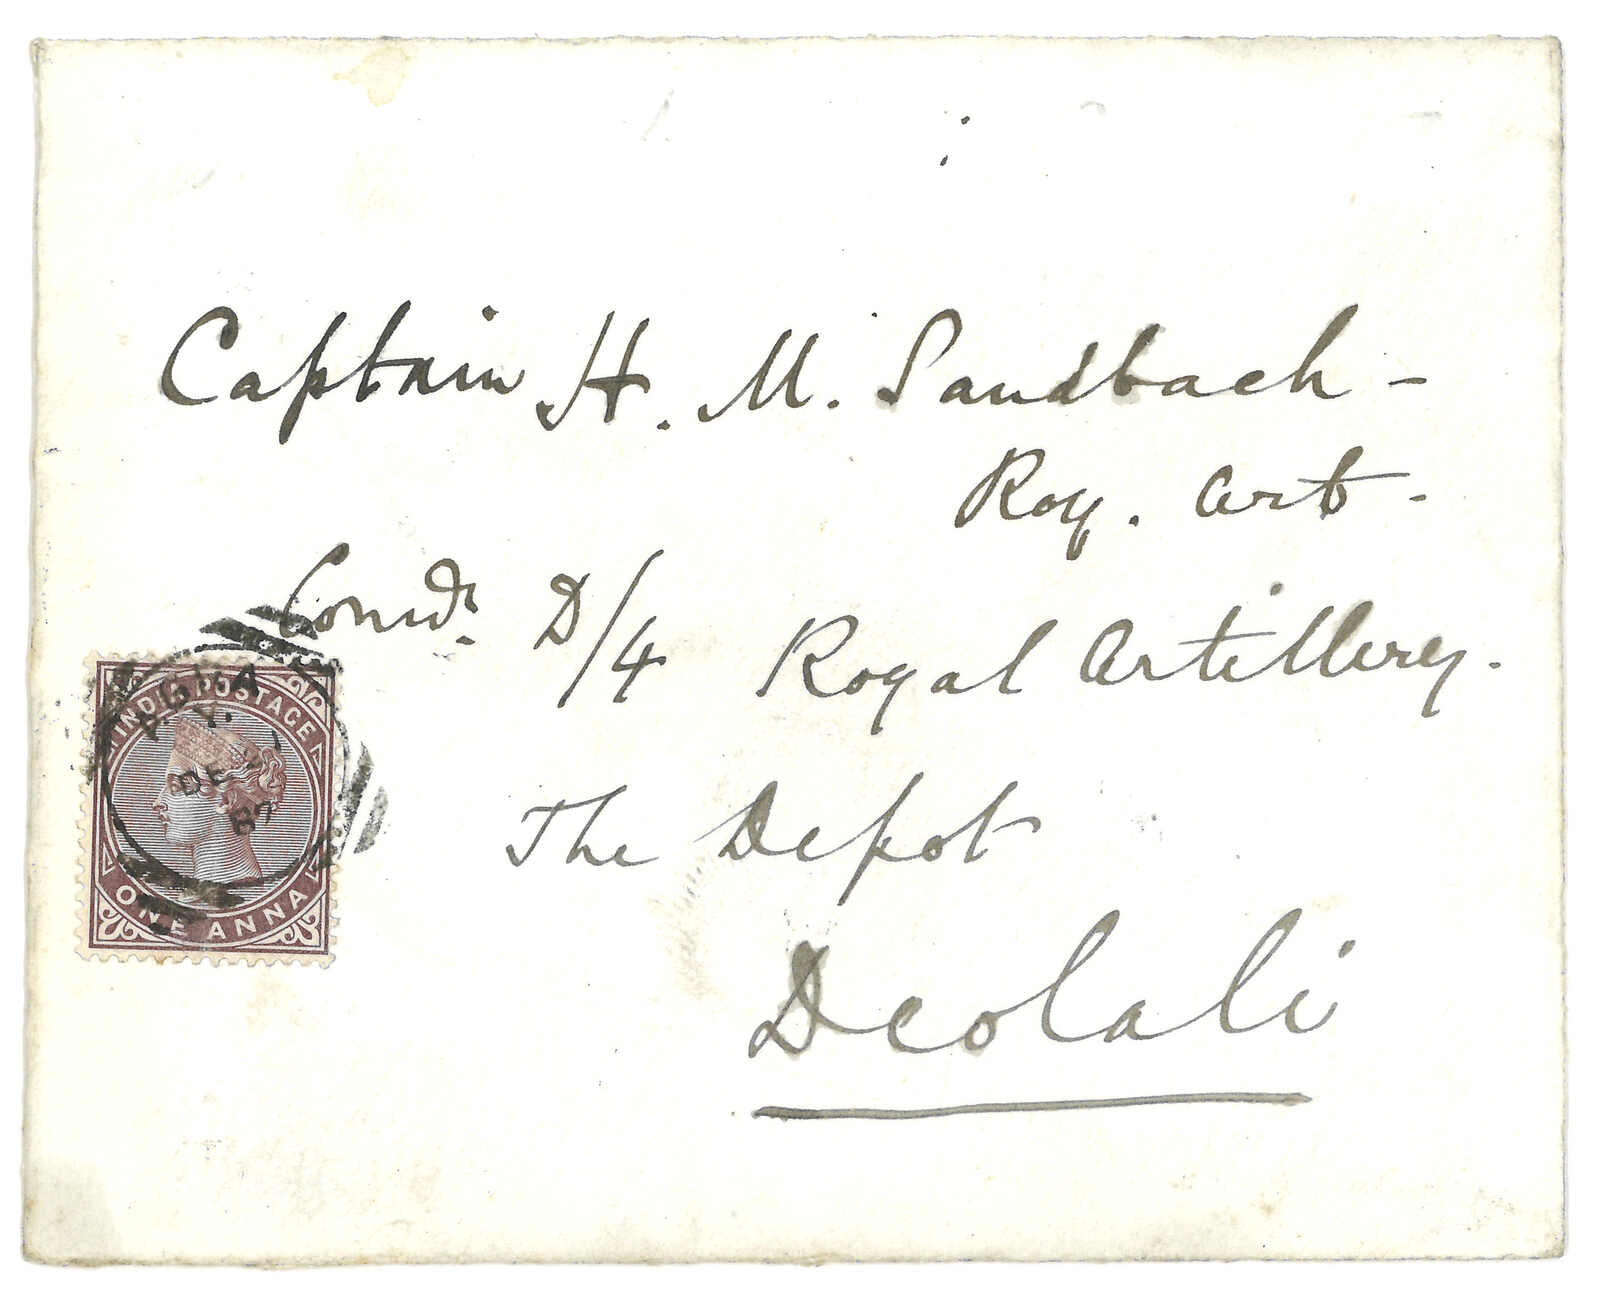 Captain H. M. Sandbach -
Roy. Art -
Comdr. D/4 Royal Artillery.
The Depot
Deolali
INDIA POSTAGE
ONE ANNA
AGRA
DE
87